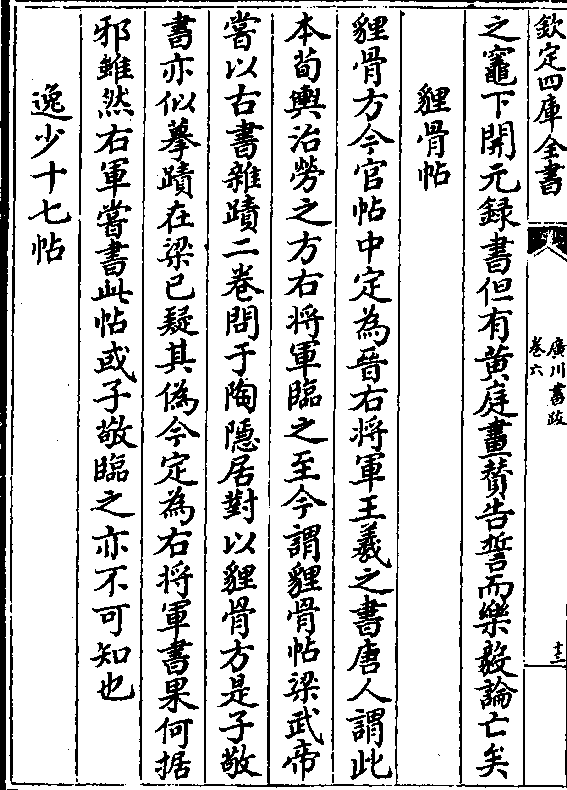 欽定四庫全書
廣川書跋
卷六
十三
之竈下開元録書但有黄庭畫贊告誓而樂毅論亡矣
貍骨帖
貍骨方今官帖中定為晉右將軍王羲之書唐人謂此
本荀輿治勞之方右將軍臨之至今謂貍骨帖梁武帝
嘗以古書雜蹟二卷問于陶隠居對以貍骨方是子敬
書亦似摹蹟在梁已疑其偽今定為右將軍書果何据
邪雖然右軍嘗書此帖或子敬臨之亦不可知也
逸少十七帖